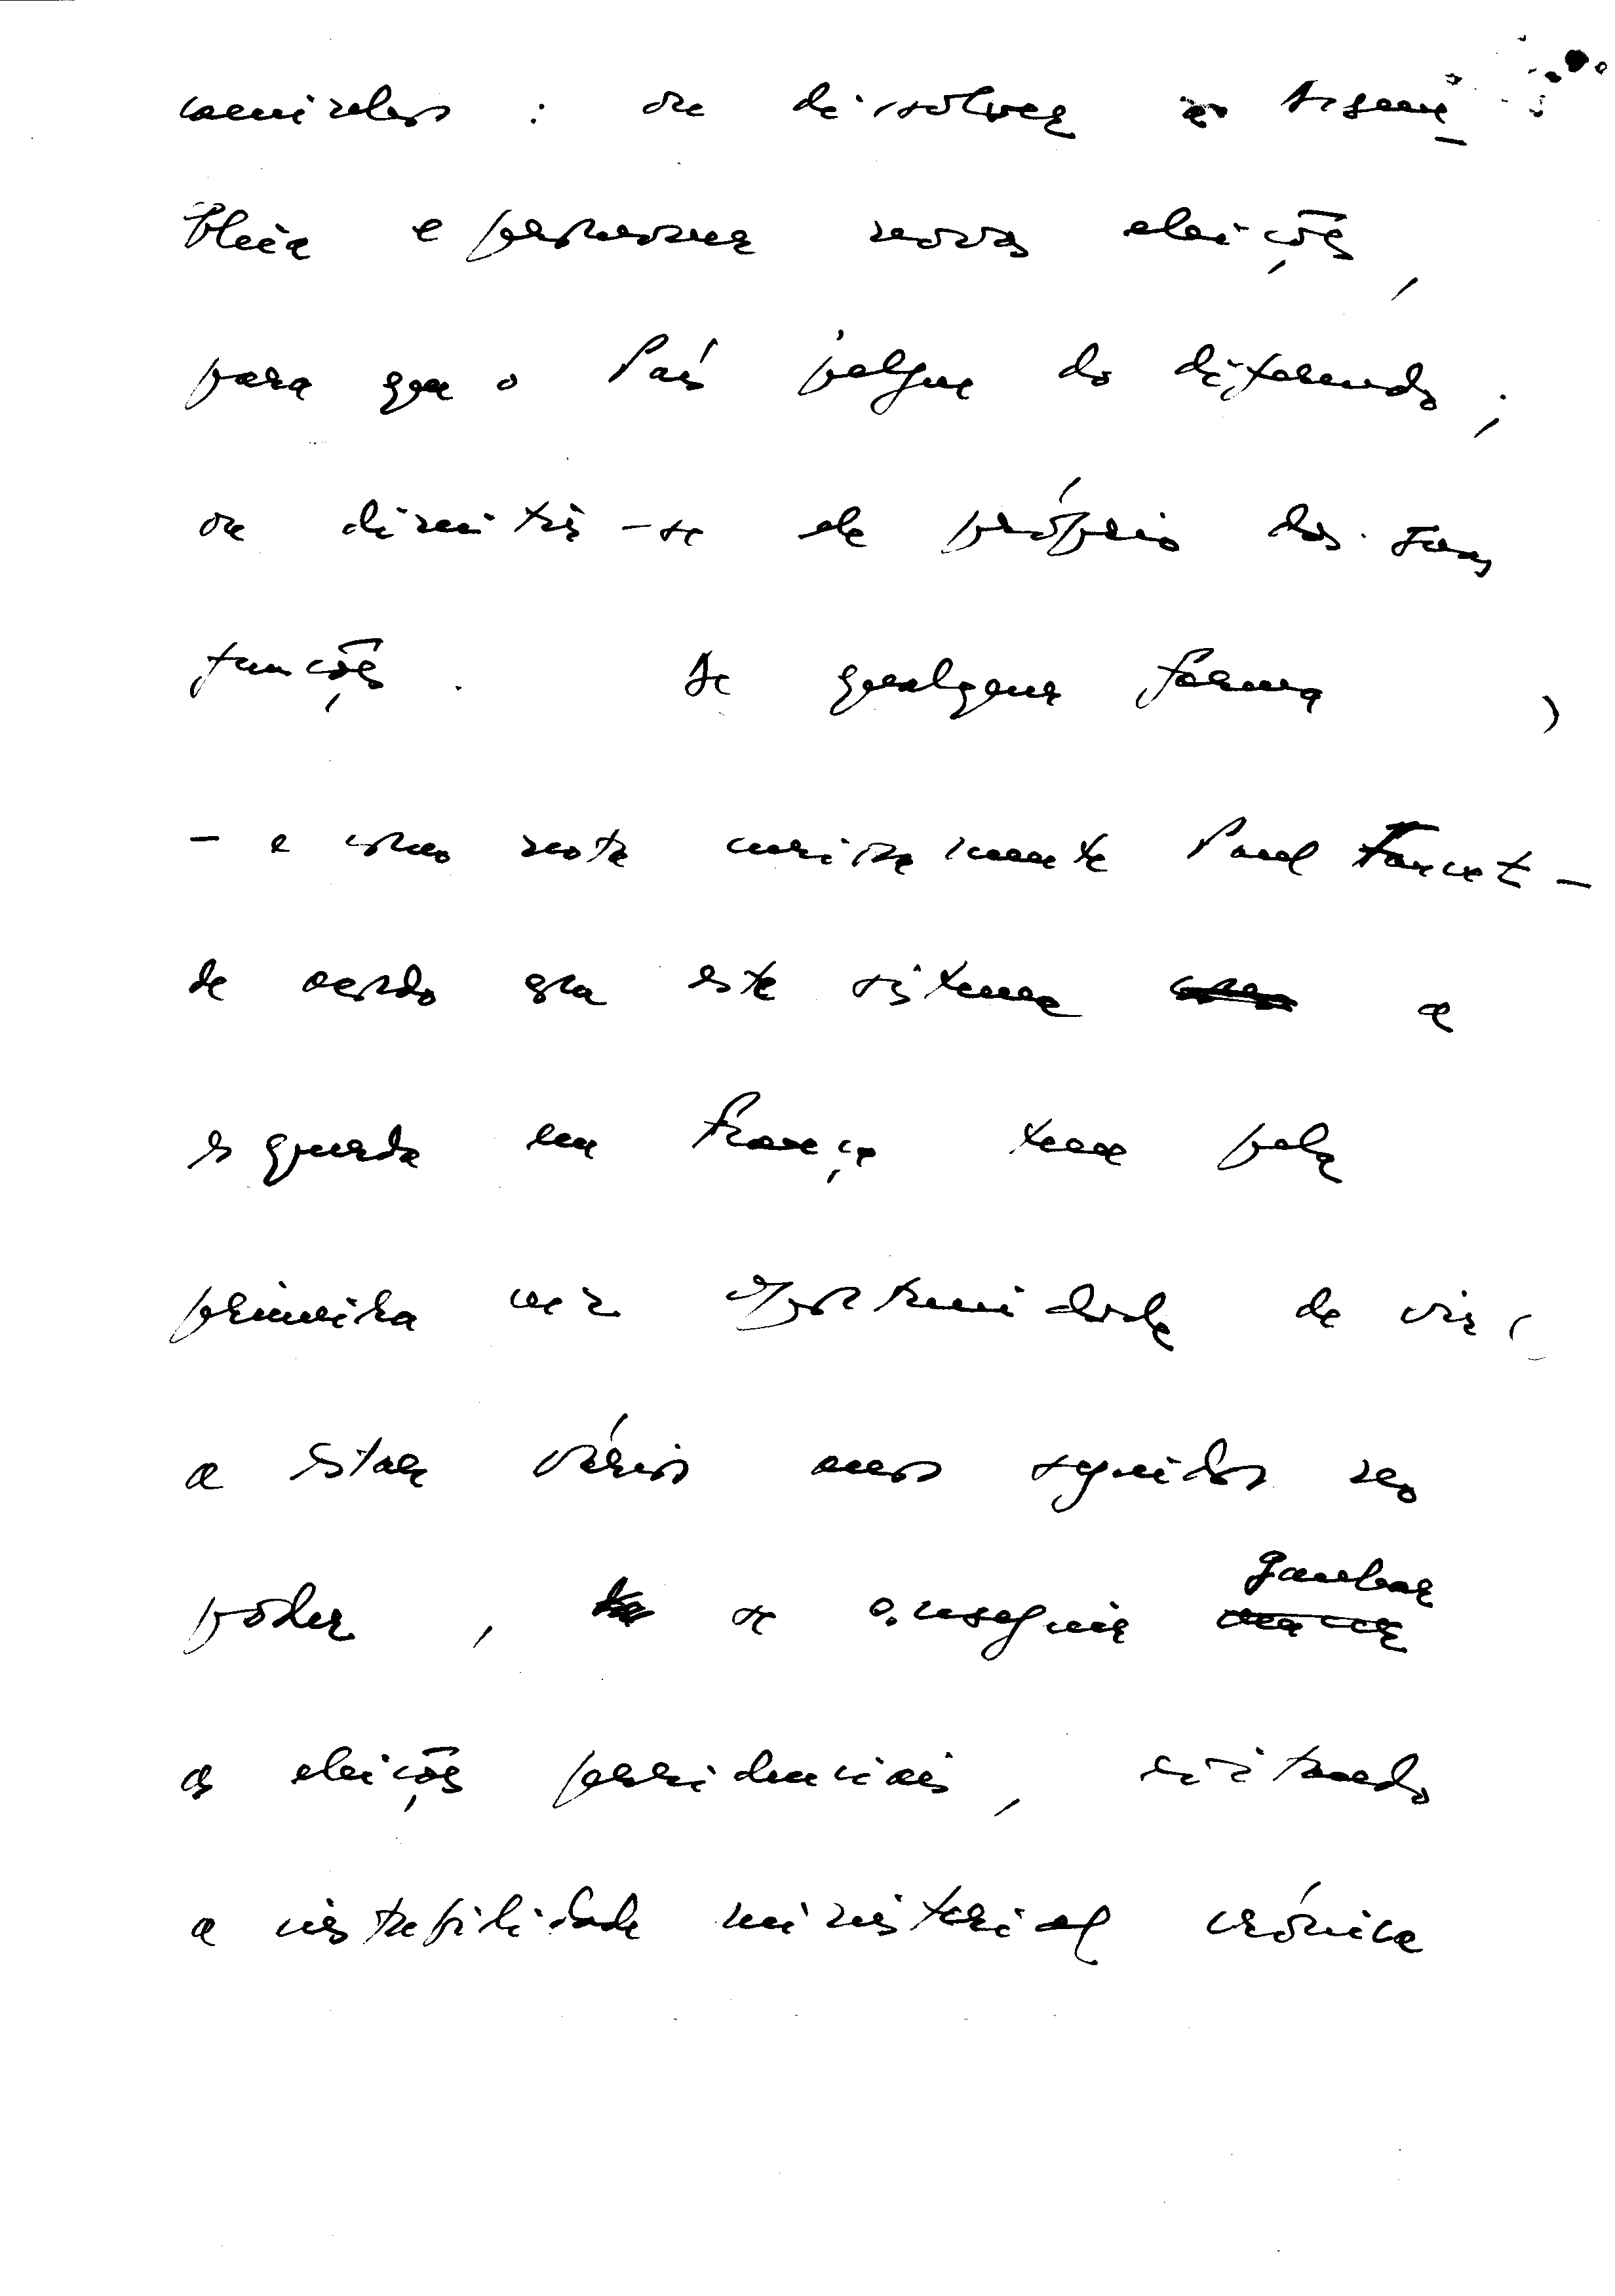 caminhos : ou dissolver a Assem-
bleia e promover novas eleições,
para que o País julgue do diferendo ;
ou demitir-se ele próprio das suas
funções . De qualquer forma
- e como nota curiosamente Paul
de acordo com este sistema a
esquerda em França tem pela
primeira vez oportunidade de vir
a estar vários anos seguidos no
poder , se conseguir ganhar
as eleições presidenciais, evitando
a instabilidade ministerial crónica